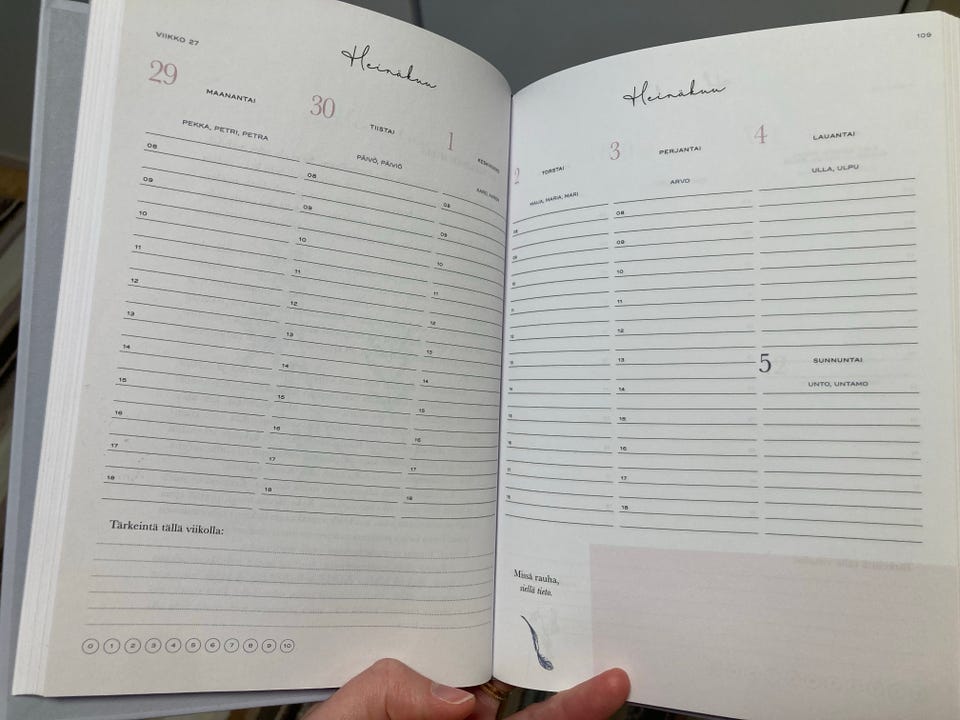 VIIKKO 27
Heinäkuu
29
MAANANTAI
PEKKA, PETRI, PETRA
08
09
10
11
12
13
14
15
16
17
18
30
TIISTAI
PÄIVÖ, PÄIVIÖ
08
09
10
11
12
13
14
15
16
17
18
1
08
09
10
11
12
13
14
15
16
17
18
Tärkeintä tällä viikolla:
0 1 2 3 4 5 6 7 8 9 10
109
Heinäkuu
2
TORSTAI
MAIJA, MARIA, MARI
3
PERJANTAI
ARVO
08
09
10
11
12
13
14
15
16
17
18
4
LAUANTAI
ULLA, ULPU
5
SUNNUNTAI
UNTO, UNTAMO
Missä rauha,
siellä tieto.